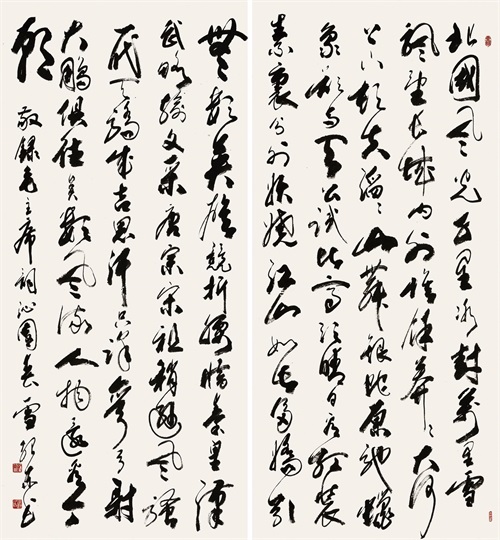 北國風光千里冰封萬里雪
飄望長城內外惟餘莽莽大河
上下頓失滔滔山舞銀蛇原馳蠟
象欲與天公試比高須晴日看紅裝
素裹分外妖嬈江山如此多嬌引
無數英雄競折腰惜秦皇漢
武略輸文采唐宗宋祖稍遜風騷
一代天驕成吉思汗只識彎弓射
大鵰俱往矣數風流人物還看今
朝 敬錄毛主席詞沁園春雪